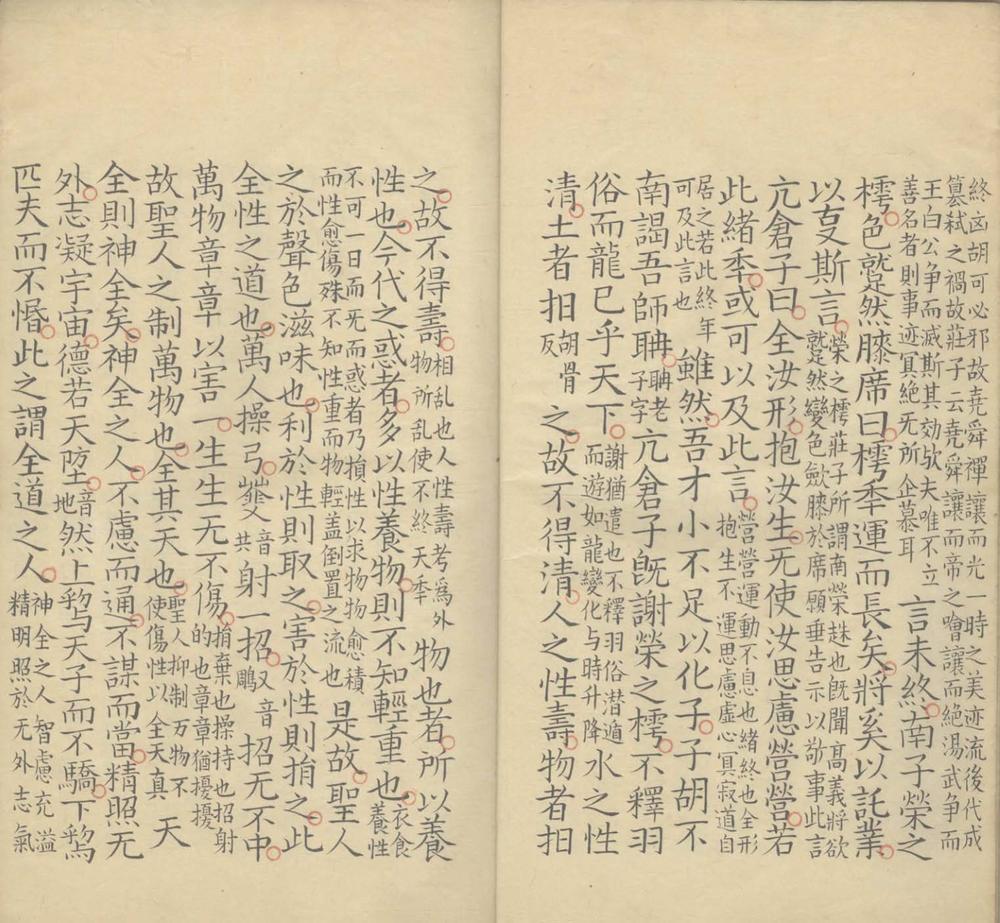 終凶胡可必邪故堯舜禪讓而光一時之美迹流後代成
篡弑之禍故莊子云堯舜讓而帝之噲讓而絕湯武争而
王白公争而滅斯其効欤夫唯不立
善名者則事迹冥絕无所企慕耳
言未終南子榮之
樗色蹵然膝席曰樗秊運而長矣將奚以託業
以叓斯言
榮之樗莊子所謂南榮趎也旣聞高義將欲
蹵然變色歛膝於席願垂告示以敬事此言
亢倉子曰全汝形抱汝生无使汝思慮營營若
此緒秊或可以及此言
營營運動不息也緒終也全形
抱生不運思慮虛心冥寂道自
居之若此終年
可及此言也
雖然吾才小不足以化子子胡不
南謁吾師聃
聃老
子字
亢倉子旣謝榮之樗不釋羽
俗而龍巳乎天下
謝猶遣也不釋羽俗潜遁
而遊如龍變化与時升降
水之性
清土者抇
胡骨
反
之故不得清人之性壽物者抇
之故不得壽
相乱也人性壽考爲外
物所乱使不終天秊
物也者所以養
性也今代之惑者多以性養物則不知輕重也
衣食
養性
不可一日而无而惑者乃損性以求物物愈積
而性愈傷殊不知性重而物輕盖倒置之流也
是故聖人
之於聲色滋味也利於性則取之害於性則捐之此
全性之道也萬人操弓
音
共
射一招
又音
鵰
招无不中
萬物章章以害一生生无不傷
捐棄也操持也招射
的也章章猶擾擾
故聖人之制萬物也全其天也
聖人抑制万物不
使傷性以全天真
天
全則神全矣神全之人不慮而通不謀而當精照无
外志凝宇宙德若天墬
音
地
然上爲天子而不驕下爲
匹夫而不惛此之謂全道之人
神全之人智慮充溢
精明照於无外志氣